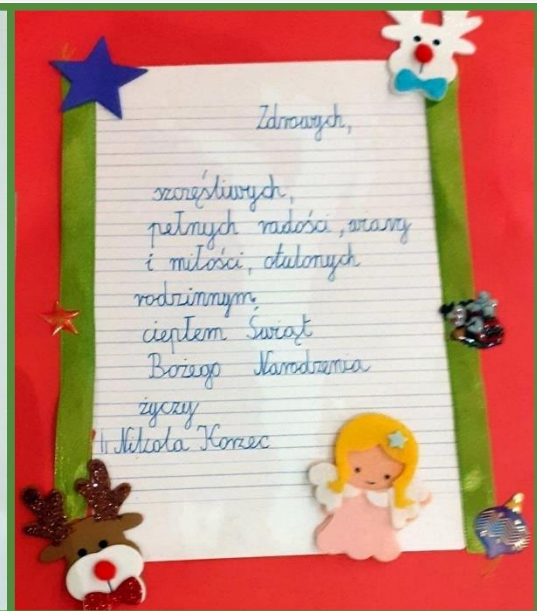 Zdrowych,
szczęśliwych,
pełnych radości, wiary
i miłości, otulonych
rodzinnym
ciepłem Świąt
Bożego Narodzenia
życzy
Nikola Korzec